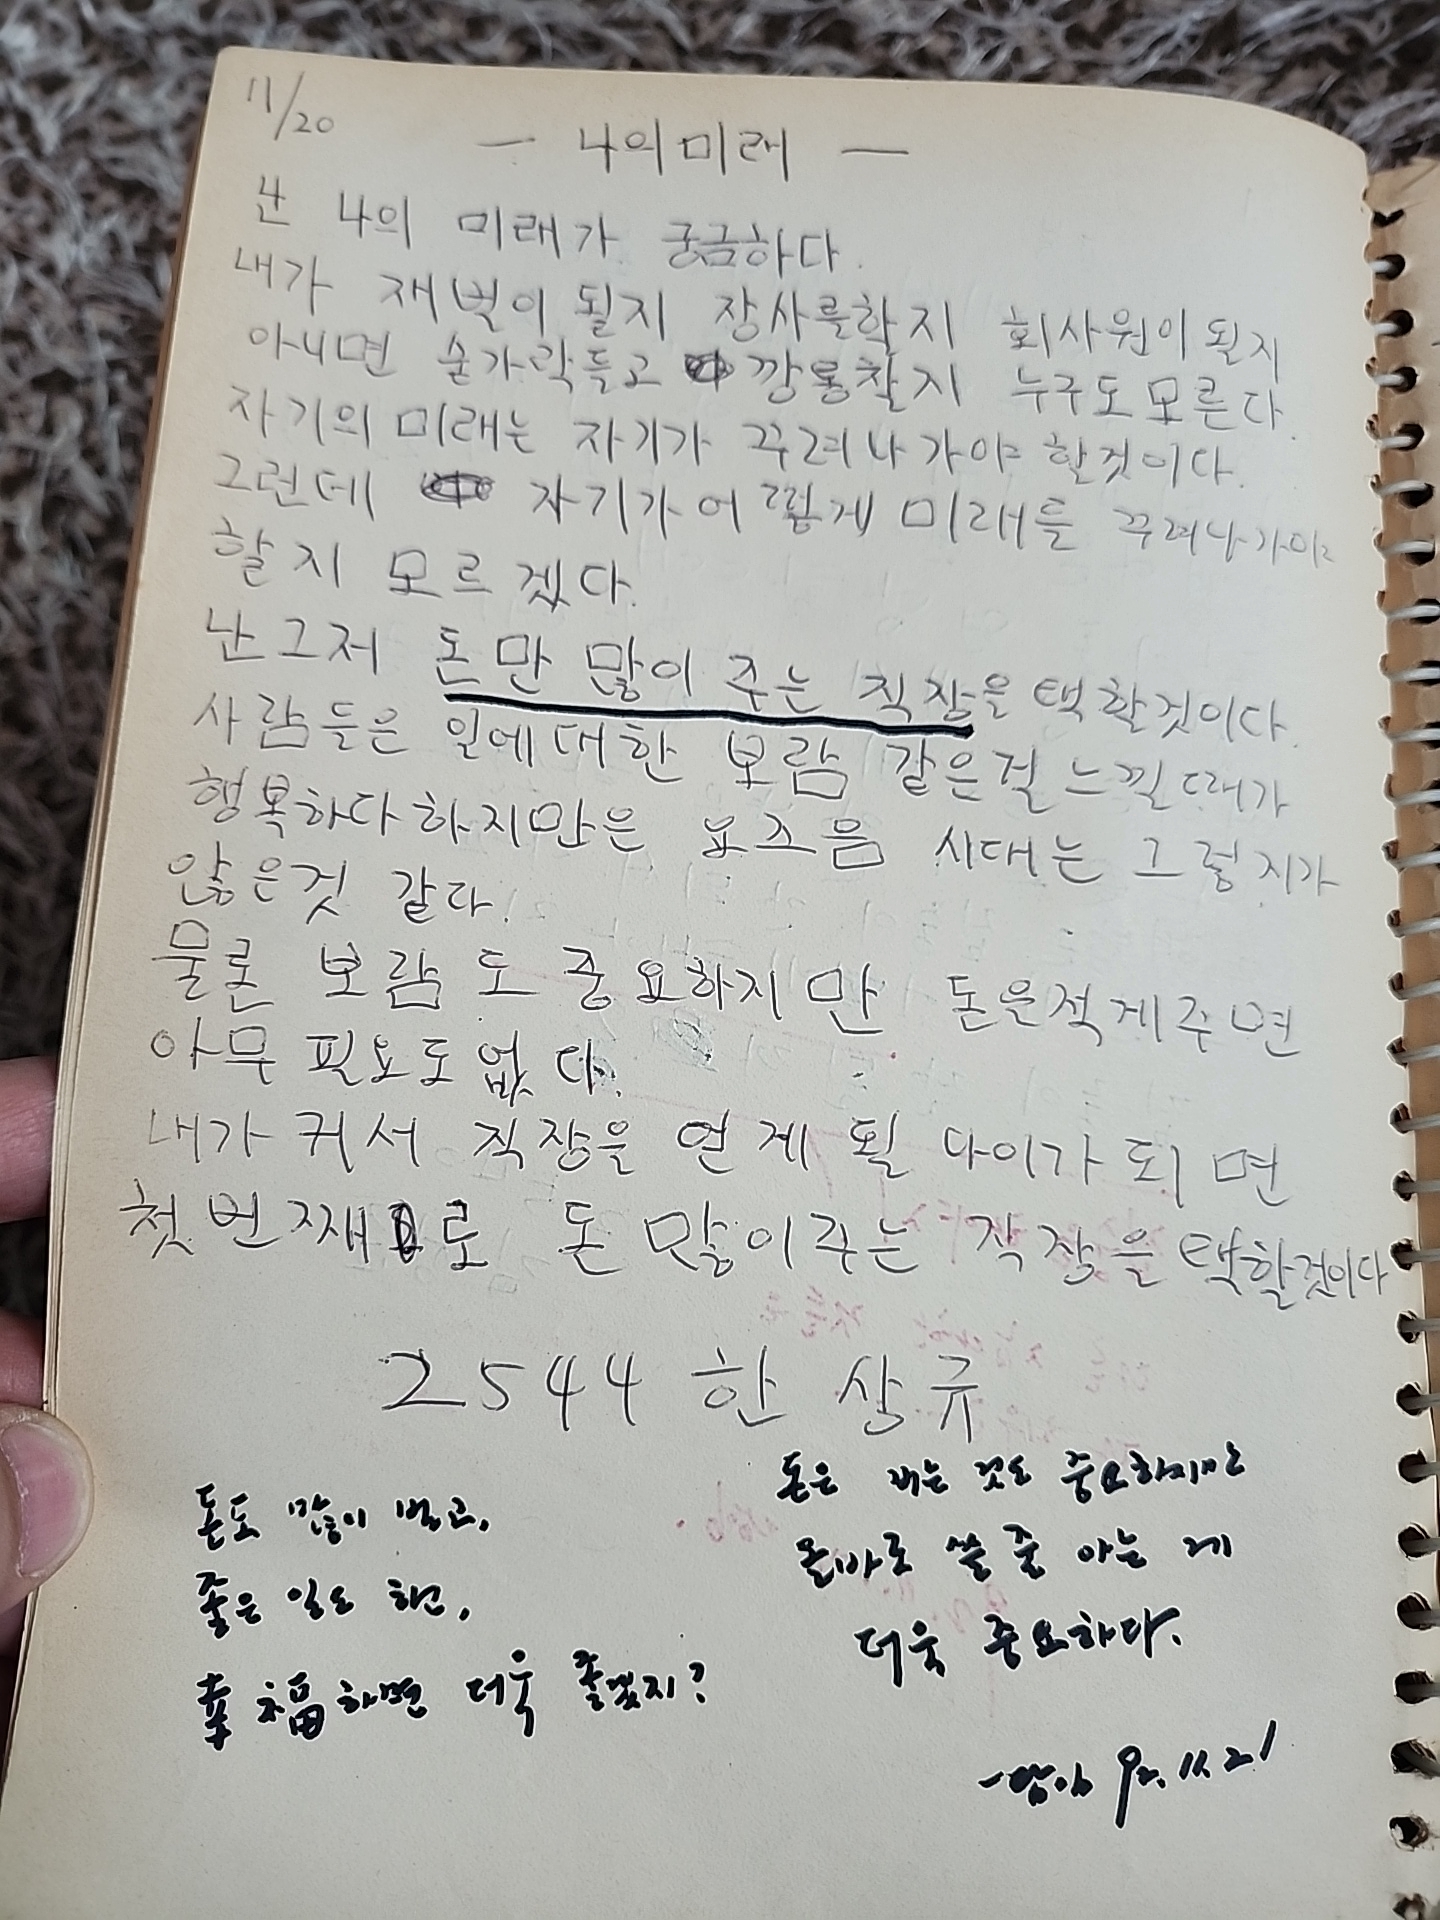 11/20
— 나의미래 —
난 나의 미래가 궁금하다.
내가 재벌이 될지 장사를할지 회사원이 될지
아니면 숟가락들고 깡통찰지 누구도모른다.
자기의미래는 자기가 꾸려나가야 할것이다.
그런데 자기가어떻게 미래를 꾸려나가야
할지 모르겠다.
난그저 돈만 많이 주는 직장을택할것이다.
사람들은 일에대한 보람 같은걸느낄때가
행복하다하지만은 요즈음 시대는 그렇지가
않은것 같다.
물론 보람도 중요하지만 돈은적게주면
아무 필요도없다.
내가 커서 직장을 얻게 될 나이가되면
첫번째로 돈 많이주는 직장을택할것이다
2544 한상규
돈도 많이 벌고,
좋은 일도 하고,
幸福하면 더욱 좋겠지?
돈은 버는 것도 중요하지만
올바로 쓸 줄 아는 게
더욱 중요하다.
92. 11. 21